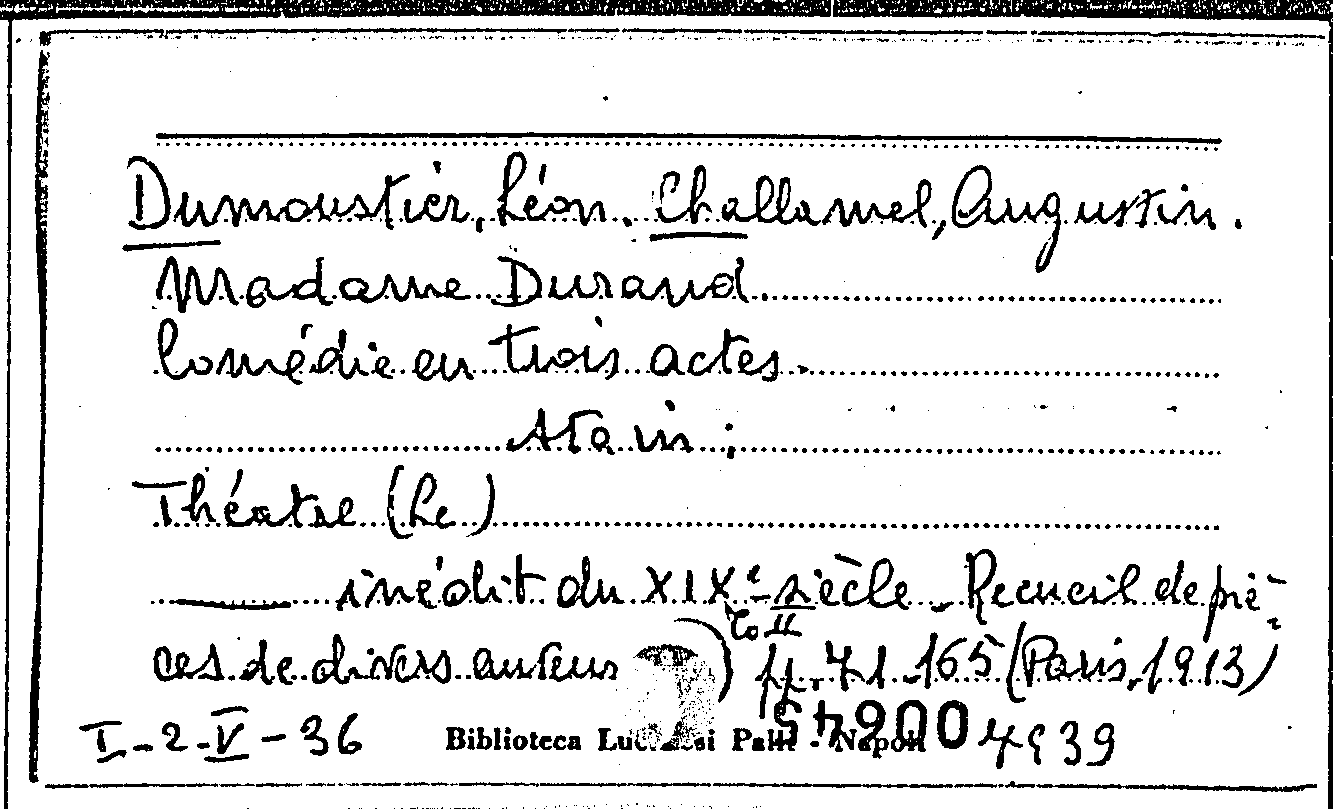 Dumoustier, Léon. Challamel, Augustin.
Madame Durand.
Comédie en trois actes.
Théatre (Le)
——— inédit du XIXe siècle - Recueil de piè-
ces de divers auteurs To II pp. 71-165 (Paris, 1913)
I-2-V-36 Biblioteca Lucchesi Palli - Napoli